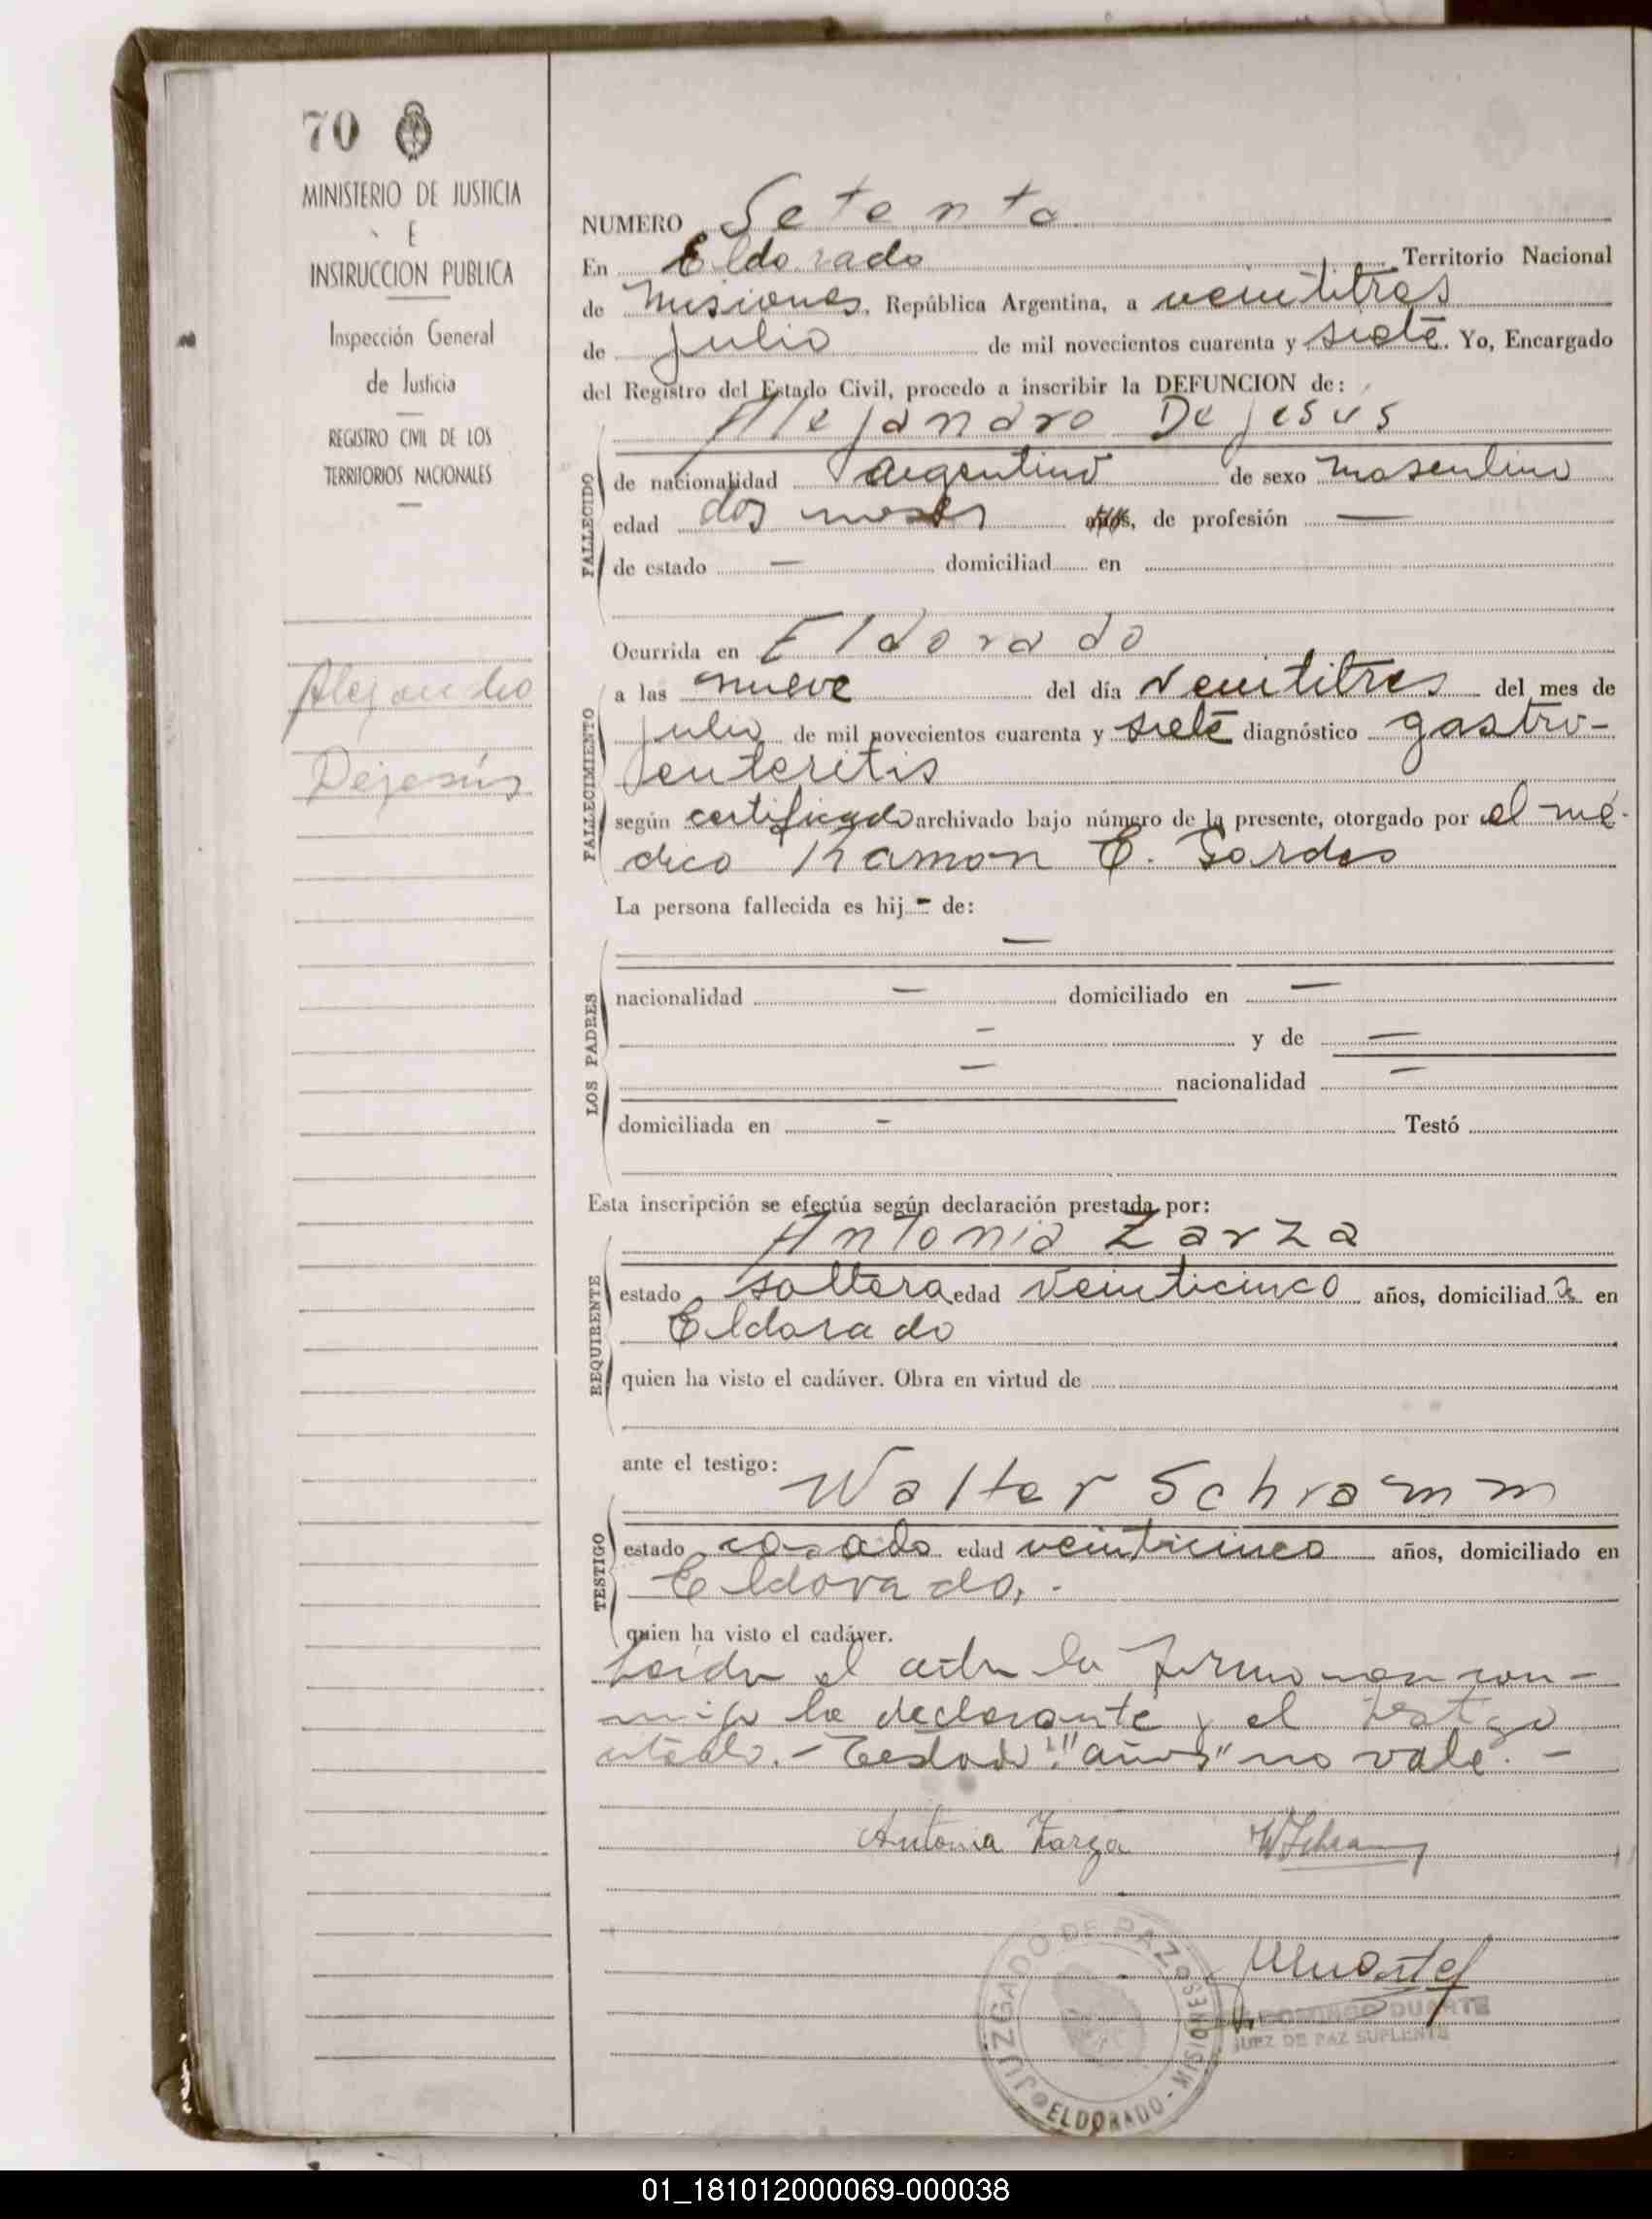 70
MINISTERIO DE JUSTICIA
E
INSTRUCCION PUBLICA
Inspección General
de Justicia
REGISTRO CIVIL DE LOS
TERRITORIOS NACIONALES
Alejandro
Dejesús
NUMERO Setenta
En Eldorado Territorio Nacional
de Misiones, República Argentina, a veintitres
de julio de mil novecientos cuarenta y siete. Yo, Encargado
del Registro del Estado Civil, procedo a inscribir la DEFUNCION de:
Alejandro Dejesús
FALLECIDO
de nacionalidad argentino de sexo masculino
edad dos meses años, de profesión —
de estado — domiciliad en
Ocurrida en Eldorado
FALLECIMIENTO
a las nueve del día veintitres del mes de
julio de mil novecientos cuarenta y siete diagnóstico gastro-
enteritis
según certificado archivado bajo número de la presente, otorgado por el mé-
dico Ramon E.
La persona fallecida es hij - de:
LOS PADRES
—
nacionalidad — domiciliado en —
— y de —
— nacionalidad —
domiciliada en - Testó
Esta inscripción se efectúa según declaración prestada por:
Antonia Zarza
REQUIRENTE
estado soltera edad veinticinco años, domiciliada en
Eldorado
quien ha visto el cadáver. Obra en virtud de
ante el testigo:
Walter Schramm
TESTIGO
estado casado edad veinticinco años, domiciliado en
Eldorado.-
quien ha visto el cadáver.
Leída el acta la firmaron con-
migo la declarante y el testigo
citado.- Testado: "años" no vale.-
Antonia Zarza W Schramm
JUZGADO DE PAZ
ELDORADO - MISIONES
DOMINGO DUARTE
JUEZ DE PAZ SUPLENTE
01_181012000069-000038